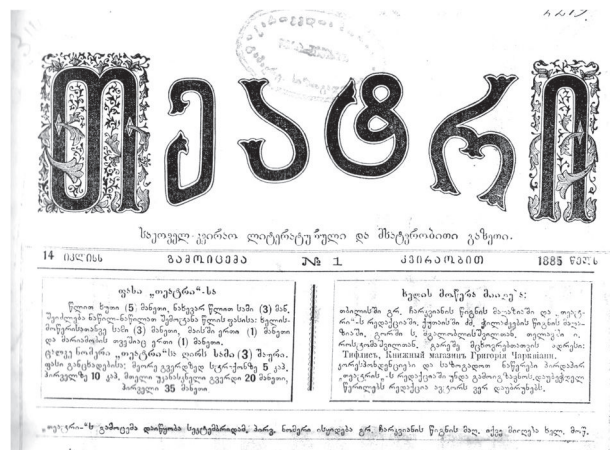 თეატრი
საკოველ-კვირაო ლიტერატურული და მხატვრობითი გაზეთი.
14 ივლისს გამოიცემა № 1 კვირაობით 1885 წელს
ფასი „თეატრი“-სა
წლით ხუთი (5) მანეთი, ნახევარ წლით სამი (3) მან.
შეიძლება ნაწილ-ნაწილათ შემოტანა წლის ფასისა: ხელის-
მოწერისათანავე სამი (3) მანეთი, მაისში ერთი (1) მანეთი
და მარიამობის თვეშიაც ერთი (1) მანეთი.
ცალკე ნომერი „თეატრი“სა ღირს სამი (3) შაური.
ფასი განცხადებისა: მეორე გვერდზედ სტრ-ქონზე 5 კაპ.
პირველზე 10 კაპ. მთელი უკანასკნელი გვერდი 20 მანეთი,
პირველი 35 მანეთი
ხელის მოწერა მიიღება:
თბილისში გრ. ჩარკვიანის წიგნის მაღაზიაში და „თეატ-
რი“-ს რედაქციაში, ქუთაისში ძმ. ჭილაძეების წიგნის მაღა-
ზიაში, გორში ს. მგალობლიშვილთან, თელავში ი.
როსტომაშვილთან, გარეშე მცხოვრებთათვის ადრესი:
Тифлисъ, Книжный магазинъ Григорія Чарквіани.
კორესპონდენციები და საზოგადოთ ნაწერები პირდაპირ
„თეატრის“-ს რედაქციაში უნდა გამოიგზავნოს. დაუბეჭდელ
წერილებს რედაქცია ავტორს ვერ დაუბრუნებს.
„თეატრი“-ს გამოცემა დაიწყობა სექტემბრიდამ, პირვ. ნომერი ისყიდება გრ. ჩარკვიანის წიგნის მაღ. იქვე მიიღება ხელ. მოწ.